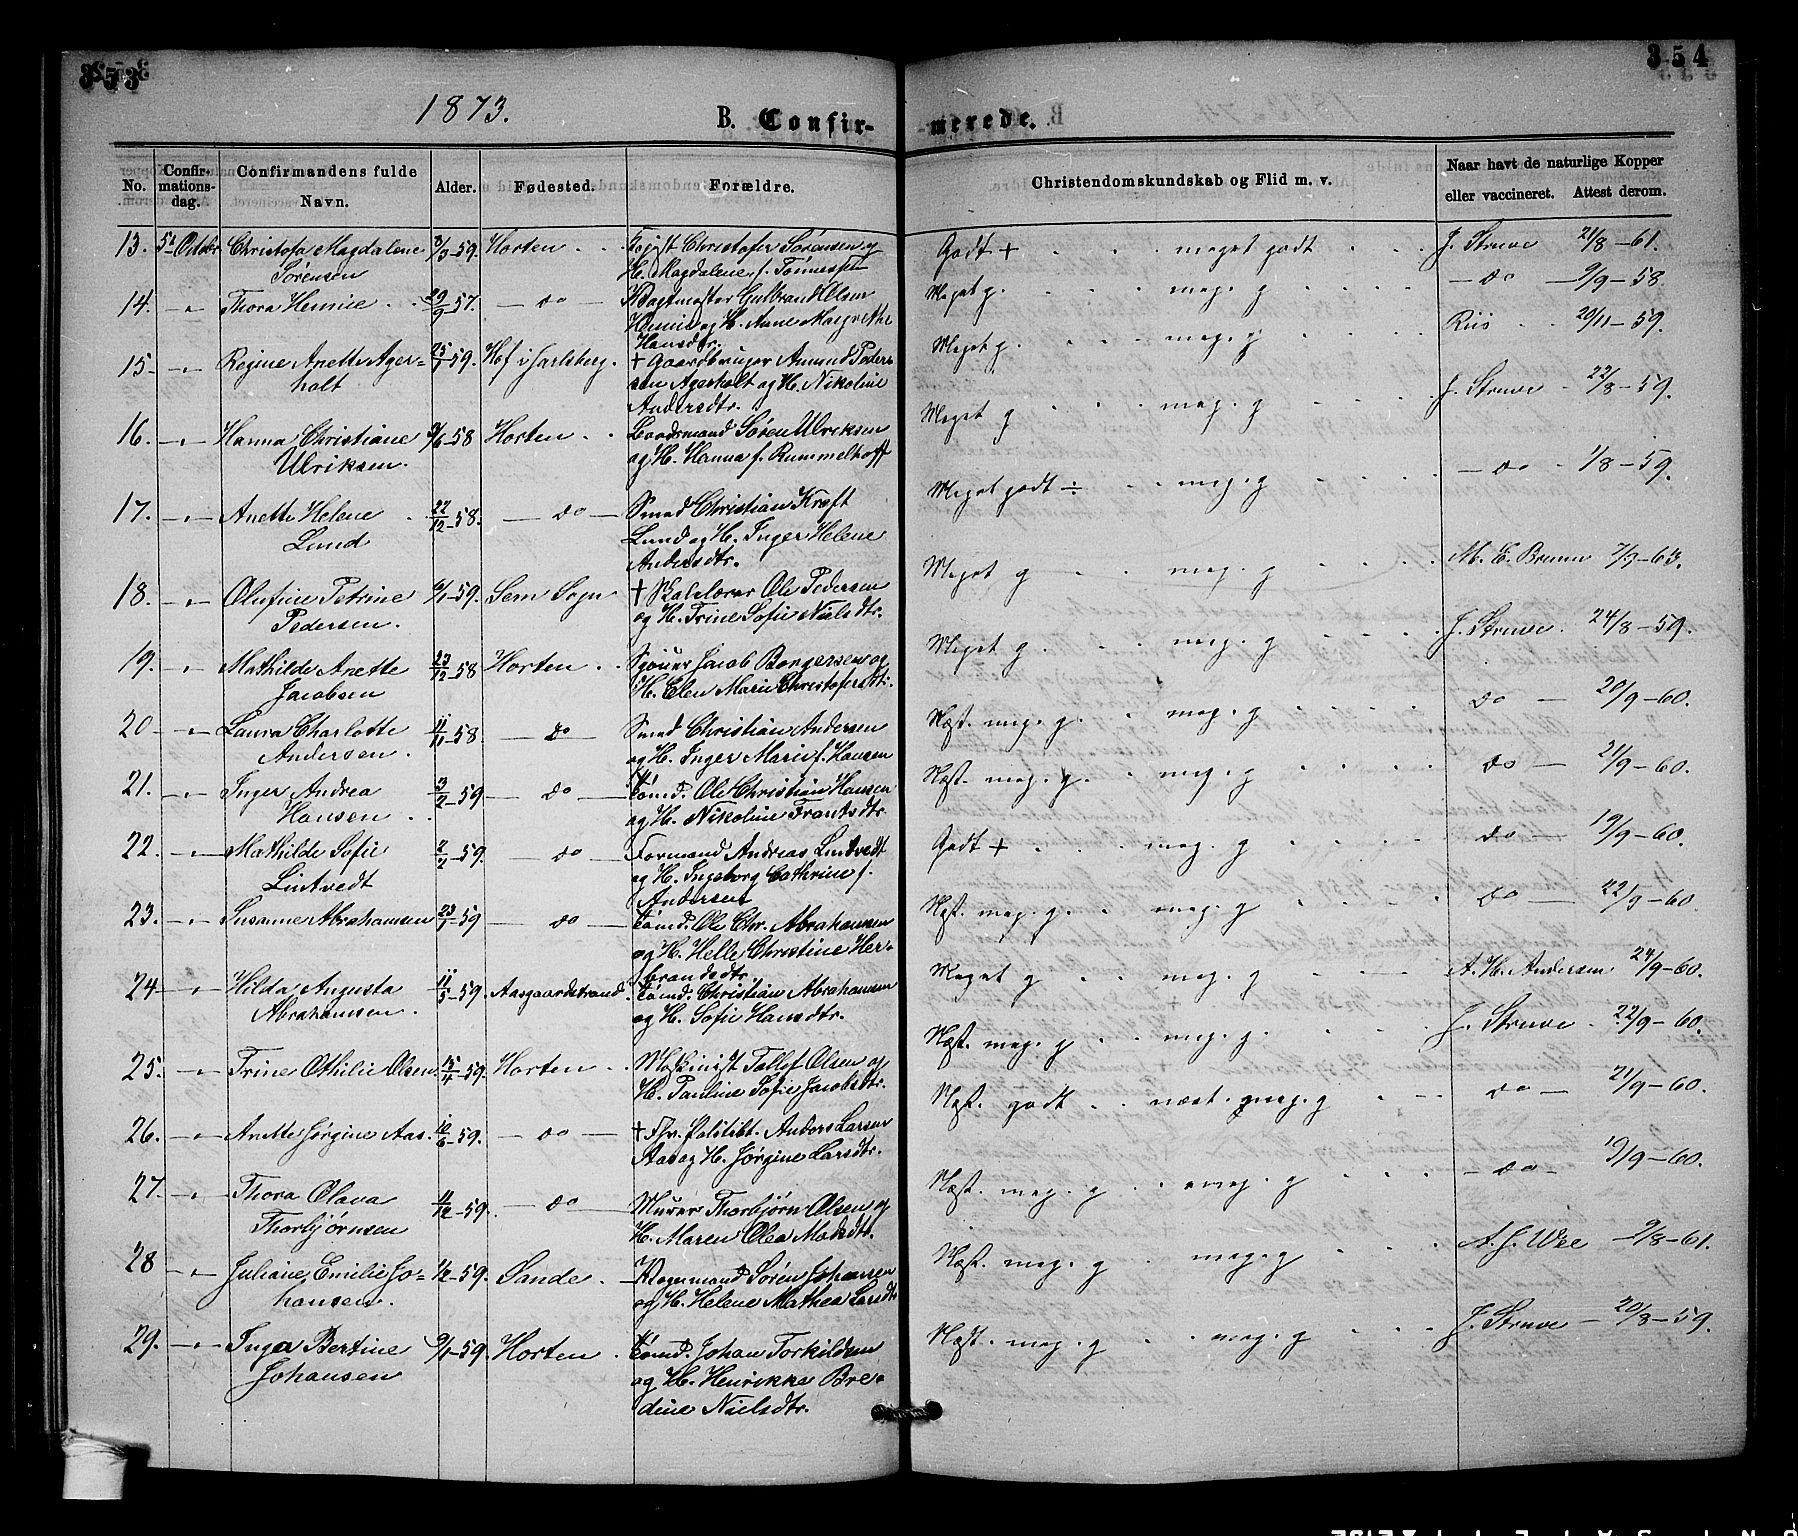 353
354
1873.
B. Confir-
merede.
No.
Confir-
mations-
dag.
Confirmandens fulde
Navn.
Alder.
Fødested.
Forældre.
Christendomskundskab og Flid m. v.
Naar havt de naturlige Kopper
eller vaccineret.
Attest derom.
13. 5te Octbr Christofa Magdalene 8/3-59. Horten Christofer Sørensen og
Sørensen H. Magdalene f. Tønnessen
Godt + meget godt J. Struve 21/8-61.
14. -"- Thora Hennie 29/9-57. -do- Vagtmester Gulbrand Olsen
Hennie og H. Anne Margrethe
Hansdtr.
Meget g. meg. g -do- 9/9-58.
15. -"- Regine Anette Ager- 25/7-59. Hof i Jarlsberg. + Gaardbruger Amund Peder-
holt sen Agerholt og H. Nikoline
Andersdtr.
Meget g. meg. g Riis 20/11-59.
16. -"- Hanna Christiane 9/6-58 Horten Søren Ulriksen
Ulriksen. og H. Hanna f. Rummelhoff
Meget g meg. g J. Struve 22/8-59.
17. -"- Anette Helene 22/12-58. -do- Smed Christian Kraft
Lund Lund og H. Inger Helene
Andersdtr.
Meget godt ÷ meg. g -do- 1/8-59.
18. -"- Olufine Petrine 6/1-59. Sem Sogn + Skolelærer Ole Pedersen
Pedersen. og H. Trine Sofie Nielsdtr.
Meget g meg. g M. E. Bruun 7/9-63.
19. " Mathilde Anette 23/12-58 Horten Jacob Borgersen og
Jacobsen H. Elen Marie Christofersdtr.
Meget g meg. g J. Struve. 24/8-59.
20 -"- Laura Charlotte 11/11-58. -do Smed Christian Andersen
Andersen. og H. Inger Marie f. Hansen
Næst. meg. g. meg. g do - 20/9-60.
21. -"- Inger Andrea 3/2-59 -do- Tømd. Ole Christian Hansen
Hansen og H. Nikoline Frantsdtr.
Næst. meg. g. meg. g do - 21/9-60.
22. -"- Mathilde Sofie 2/2-59. -do Formand Andreas Lintvedt
Lintvedt og H. Ingeborg Cathrine f.
Andersen
Godt + meg. g do - 19/9-60.
23. -"- Susanne Abrahamsen 23/1-59 -do Tømd. Ole Chr. Abrahamsen
og H. Helle Christine Her-
brandsdtr.
Næst. meg. g. meg. g do - 22/9-60.
24 -"- Hilda Augusta 11/5-59. Aasgaardstrand Tømd. Christian Abrahamsen
Abrahamsen. og H. Sofie Hansdtr.
Meget g meg. g A. H. Andersen 24/9-60.
25. -"- Trine Othilie Olsen 15/4-59. Horten Maskinist Tollef Olsen og
H. Pauline Sofie Jacobsdtr.
Næst. meg. g meg. g. J. Struve. 22/9-60.
26. -"- Anette Jørgine Aas. 10/6-59. -do- + Fhv. Politibt. Anders Larsen
Aas og H. Jørgine Larsdtr.
Næst. godt næst. meg. g do - 21/9-60.
27. -"- Thora Olava 11/12-59. -do- Murer Thorbjørn Olsen og
Thorbjørnsen H. Maren Olea Matsdtr.
Næst. meg. g meg. g -do- 19/9-60.
28 -"- Juliane Emilie Jo- 1/2-59. Sande Søren Johansen
hansen. og H. Helene Mathea Larsdtr
Næst. meg. g meg. g A. J. Wee 9/8-61.
29. -"- Inga Bertine 9/1-59. Horten Tømd. Johan Torkildsen
Johansen og H. Henrikke Bre-
dine Nielsdtr.
Næst. meg. g meg. g J. Struve - 20/8-59.